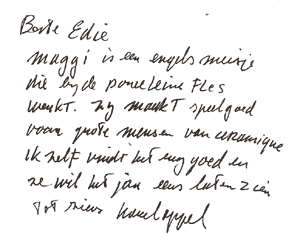 Beste Edie
maggi is een engels meisje
die by de porceleine Fles
werkt. zy maakt speelgoed
voor grote mensen van ceramique
ik zelf vindt het erg goed en
ze wil het jou eens laten zien
tot ziens Karel appel